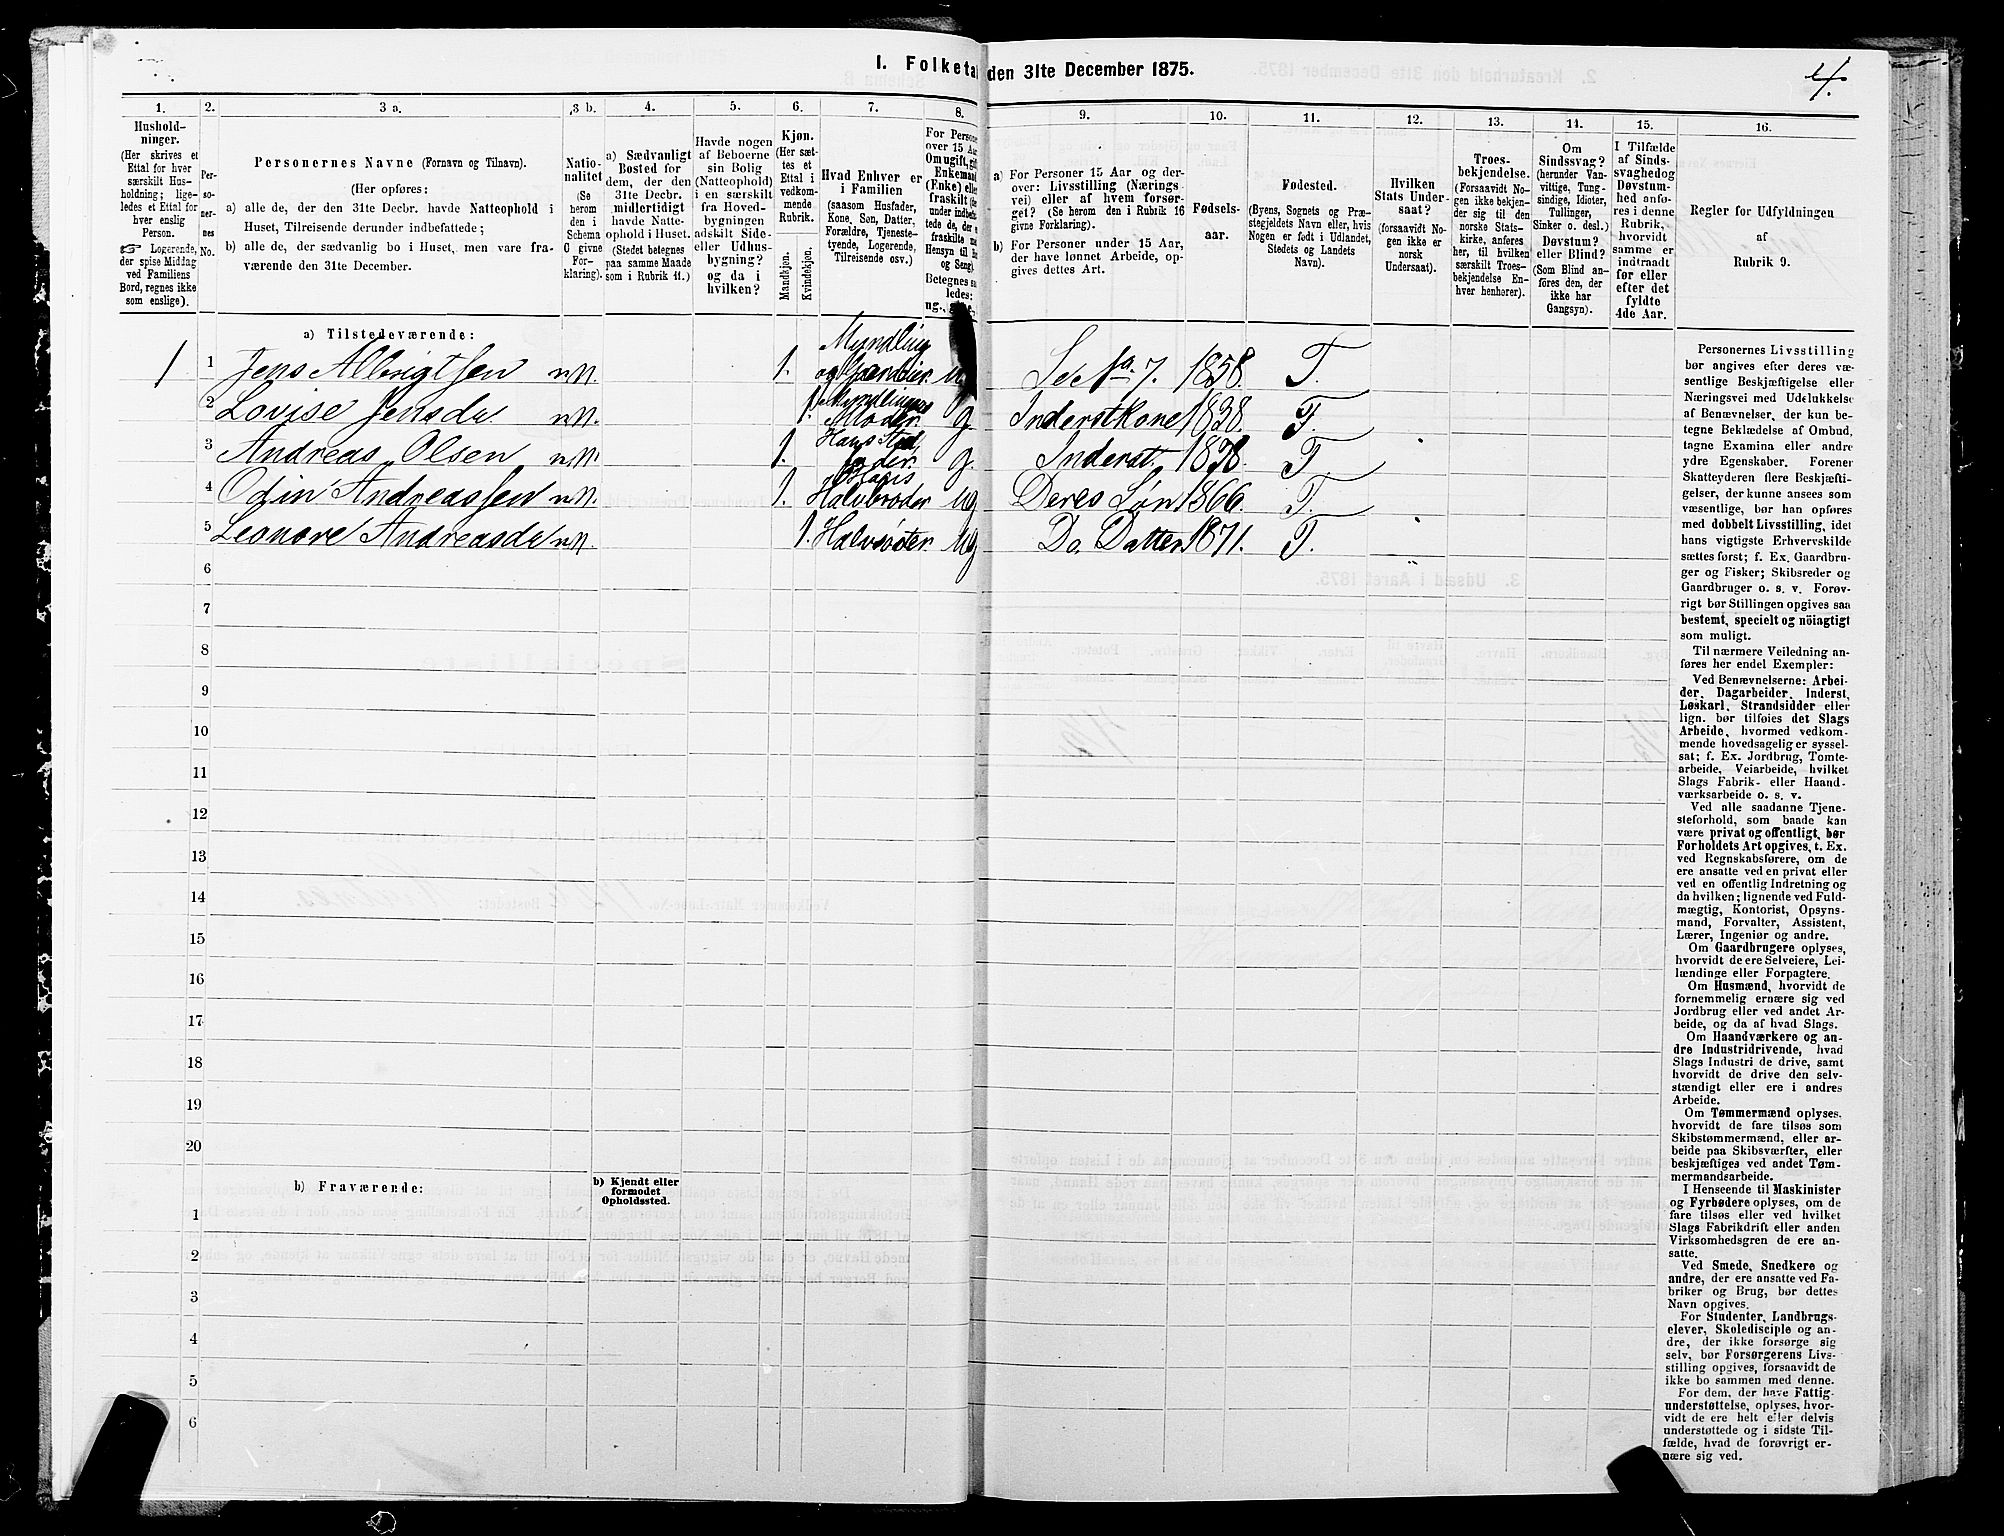 1. Folketal den 31te December 1875.
4.
1.
Hushold-
ninger.
(Her skrives et
Ettal for hver
særskilt Hus-
holdning; lige-
ledes et Ettal for
hver enslig
Person.
☞ Logerende,
der spise Middag
ved Familiens
Bord, regnes ikke
som enslige).
2.
Per-
so-
ner-
nes
No.
3 a.
Personernes Navne (Fornavn og Tilnavn).
(Her opføres:
a) alle de, der den 31te Decbr. havde Natteophold i
Huset, Tilreisende derunder indbefattede;
b) alle de, der sædvanlig bo i Huset, men vare fra-
værende den 31te December.
3 b.
Natio-
nalitet
(Se
herom
den i
Schema
C givne
For-
klaring).
4.
a) Sædvanligt
Bosted for
dem, der den
31te Decbr.
midlertidigt
havde Natte-
ophold i Huset.
(Stedet betegnes
paa samme Maade
som i Rubrik 11.)
5.
Havde nogen
af Beboerne
sin Bolig
(Natteophold)
i en særskilt
fra Hoved-
bygningen
adskilt Side-
eller Udhus-
bygning?
og da i
hvilken?
6.
Kjøn.
(Her sæt-
tes et
Ettal i
vedkom-
mende
Rubrik.
Mandkjøn.
Kvindekjøn.
7.
Hvad Enhver er
i Familien
(saasom Husfader,
Kone, Søn, Datter,
Forældre, Tjeneste-
tyende, Logerende,
Tilreisende osv.)
8.
For Person
over 15 Aar
Om ugift, gift
Enkemand
(Enke) eller
fraskilt
9.
a) For Personer 15 Aar og der-
over: Livsstilling (Nærings-
vei) eller af hvem forsør-
get? (Se herom den i Rubrik 16
givne Forklaring).
b) For Personer under 15 Aar,
der have lønnet Arbeide, op-
gives dettes Art.
10.
Fødsels-
aar.
11.
Fødested.
(Byens, Sognets og Præ-
stegjeldets Navn eller, hvis
Nogen er født i Udlandet,
Stedets og Landets
Navn).
12.
Hvilken
Stats Under-
saat?
(forsaavidt No-
gen ikke er
norsk
Undersaat).
13.
Troes-
bekjendelse.
(Forsaavidt No-
gen ikke bekjen-
der sig til den
norske Stats-
kirke, anføres
her, til hvilken
særskilt Troes-
bekjendelse En-
hver henhører).
14.
Om
Sindssvag?
(herunder Van-
vittige, Tung-
sindige, Idioter,
Tullinger,
Sinker o. desl.)
Døvstum?
eller Blind?
(Som Blind an-
føres den, der
ikke har
Gangsyn).
15.
I Tilfælde
af Sinds-
svaghed og
Døvstum-
hed anfø-
res i denne
Rubrik,
hvorvidt
samme er
indtraadt
før eller
efter det
fyldte
4de Aar.
16.
Regler for Udfyldningen
af
Rubrik 9.
a) Tilstedeværende:
1 1 Jens Albrigtsen n.N. 1. Myndling og Gaardeier. ug Se No 7. 1858. T.
2 Lovise Jensda n.N. 1. Myndlingens Moder. g Inderstkone 1838. T.
3 Andreas Olsen n.N. 1. Hans Sted fader. g. Inderst. 1838. T.
4 Odin Andreassen n.N. 1. Hans Halvbroder ug Deres Søn 1866. T.
5 Leonore Andreasda n.N. 1. Halvsøster. ug Do Datter 1871. T.
6
7
8
9
10
11
12
13
14
15
16
17
18
19
20
b) Fraværende:
b) Kjendt eller
formodet
Opholdssted.
1
2
3
4
5
6
Personernes Livsstilling
bør angives efter deres væ-
sentlige Beskjæftigelse eller
Næringsvei med Udelukkelse
af Benævnelser, der kun be-
tegne Beklædelse af Ombud,
tagne Examina eller andre
ydre Egenskaber. Forener
Skatteyderen flere Beskjæfti-
gelser, der kunne ansees som
væsentlige, bør han opføres
med dobbelt Livsstilling, idet
hans vigtigste Erhvervskilde
sættes først; f. Ex. Gaardbru-
ger og Fisker; Skibsreder og
Gaardbruger o. s. v. Forøv-
rigt bør Stillingen opgives saa
bestemt, specielt og nöiagtigt
som muligt.
Til nærmere Veiledning an-
føres her endel Exempler:
Ved Benævnelserne: Arbei-
der, Dagarbeider, Inderst,
Løskarl, Strandsidder eller
lign. bør tilføies det Slags
Arbeide, hvormed vedkom-
mende hovedsagelig er syssel-
sat; f. Ex. Jordbrug, Tomte-
arbeide, Veiarbeide, hvilket
Slags Fabrik- eller Haand-
værksarbeide o. s. v.
Ved alle saadanne Tjene-
steforhold, som baade kan
være privat og offentligt, bør
Forholdets Art opgives, t. Ex.
ved Regnskabsførere, om de
ere ansatte ved en privat eller
ved en offentlig Indretning og
da hvilken; lignende ved Fuld-
mægtig, Kontorist, Opsyns-
mand, Forvalter, Assistent,
Lærer, Ingeniør og andre.
Om Gaardbrugere oplyses,
hvorvidt de ere Selveiere, Lei-
lændinge eller Forpagtere.
Om Husmænd, hvorvidt de
fornemmelig ernære sig ved
Jordbrug eller ved andet Ar-
beide, og da af hvad Slags.
Om Haandværkere og an-
dre Industridrivende, hvad
Slags Industri de drive, samt
hvorvidt de drive den selv-
stændigt eller ere i andres
Arbeide.
Om Tømmermænd oplyses,
hvorvidt de fare tilsøs som
Skibstømmermænd, eller ar-
beide paa Skibsværfter, eller
beskjæftiges ved andet Tøm-
mermandsarbeide.
I Henseende til Maskinister
og Fyrbødere oplyses, om de
fare tilsøs eller ved hvilket
Slags Fabrikdrift eller anden
Virksomhedsgren de ere an-
satte.
Ved Smede, Snedkere og
andre, der ere ansatte ved Fa-
briker og Brug, bør dettes
Navn opgives.
For Studenter, Landbrugs-
elever, Skoledisciple og an-
dre, der ikke forsørge sig
selv, bør Forsørgerens Livs-
stilling opgives, forsaavidt de
ikke bo sammen med denne.
For dem, der have Fattig-
understøttelse, oplyses, hvor-
vidt de ere helt eller delvis
understøttede og i sidste Til-
fælde, hvad de forøvrigt er-
nære sig ved.